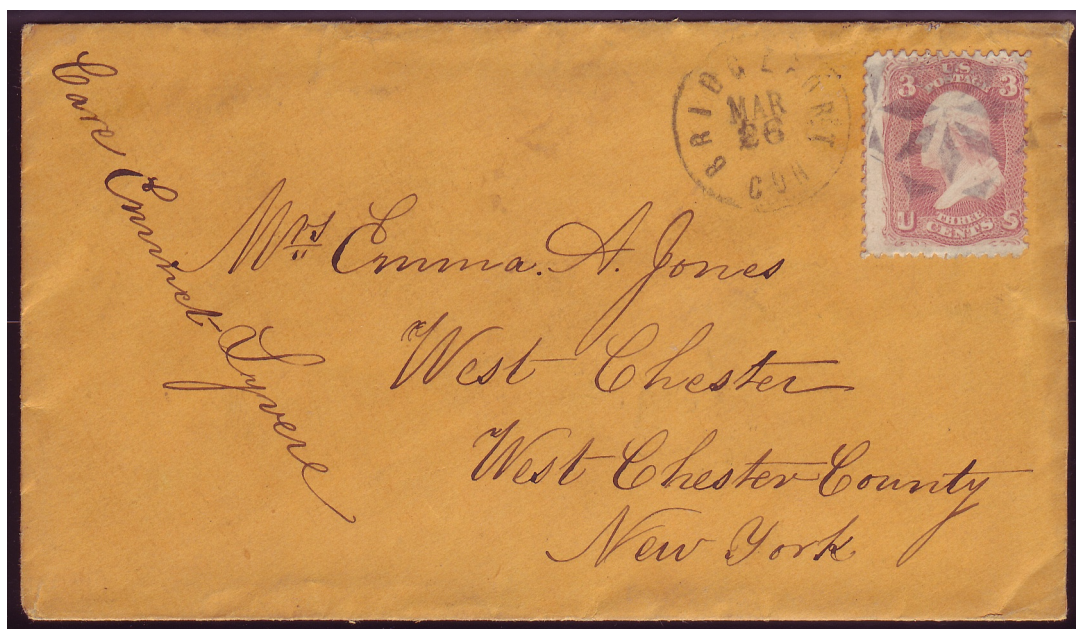 Care Emmet Lyvere
BRIDGEPORT
MAR
26
CON
3 U.S. 3
POSTAGE
U THREE S
CENTS
Mrs Emma. A. Jones
West Chester
West Chester County
New York